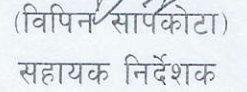 (विपिन सापकोटा)
सहायक निर्देशक